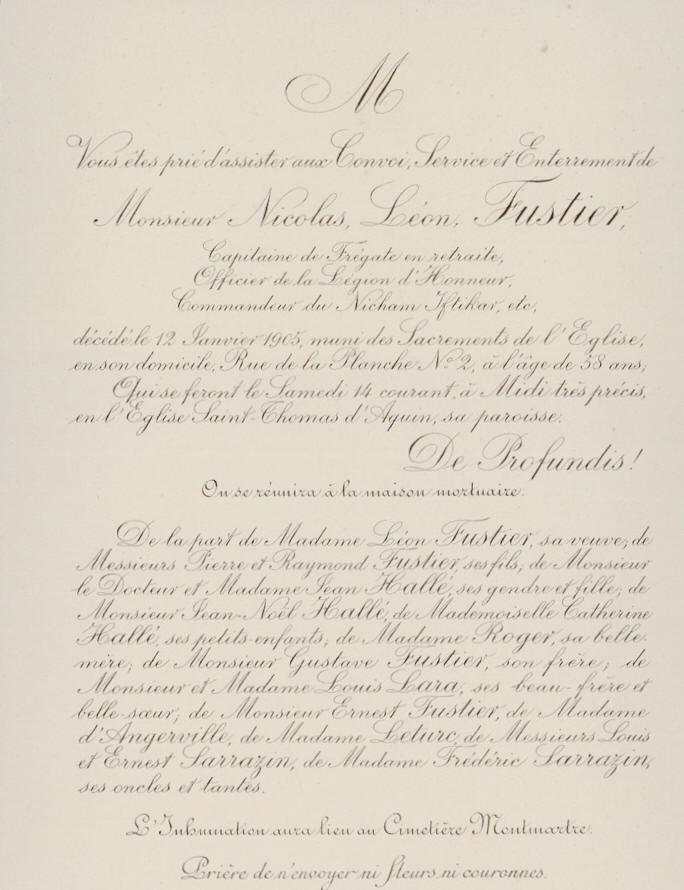 M
Vous êtes prié d'assister aux Convoi, Service et Enterrement de
Monsieur Nicolas, Léon, Fustier,
Capitaine de Frégate en retraite,
Officier de la Légion d'Honneur,
Commandeur du Nicham Iftikar, etc,
décédé le 12 Janvier 1905, muni des Sacrements de l'Eglise,
en son domicile, Rue de la Planche Nº 2, à l'âge de 58 ans;
Qui se feront le Samedi 14 courant, à Midi très précis,
en l'Eglise Saint-Thomas d'Aquin, sa paroisse.
De Profundis!
On se réunira à la maison mortuaire.
De la part de Madame Léon Fustier, sa veuve; de
Messieurs Pierre et Raymond Fustier, ses fils; de Monsieur
le Docteur et Madame Jean Hallé, ses gendre et fille; de
Monsieur Jean-Noël Hallé, de Mademoiselle Catherine
Hallé, ses petits enfants; de Madame Roger, sa belle-
mère; de Monsieur Gustave Fustier, son frère; de
Monsieur et Madame Louis Lara, ses beau-frère et
belle-sœur; de Monsieur Ernest Fustier, de Madame
d'Angerville, de Madame Leturc, de Messieurs Louis
et Ernest Sarrazin, de Madame Frédéric Sarrazin,
ses oncles et tantes.
L'Inhumation aura lieu au Cimetière Montmartre.
Prière de n'envoyer ni fleurs ni couronnes.